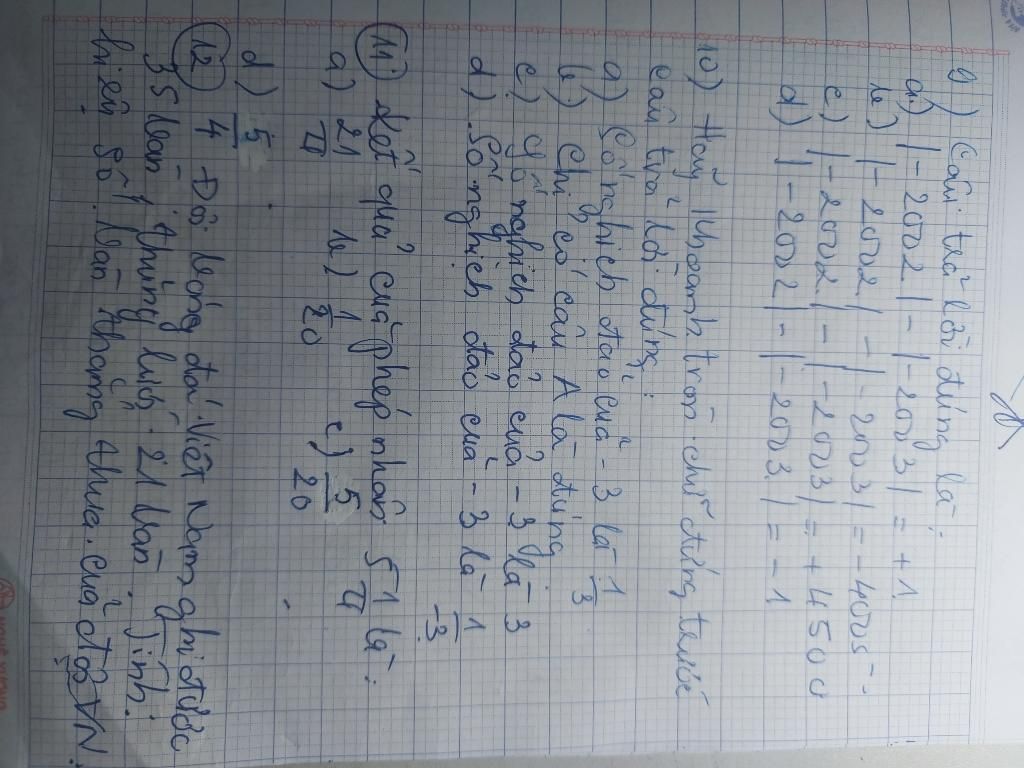 9) Câu trả lời đúng là:
a) |-2002| - |-2003| = +1
b) |-2002| - |-2003| = -4005
c) |-2002| - |-2003| = +4500
d) |-2002| - |-2003| = -1
10) Hãy khoanh tròn chữ đứng trước
câu trả lời đúng:
a) Số nghịch đảo của -3 là 1/3
b) Chỉ có câu A là đúng
c) Số nghịch đảo của -3 là 3
d) Số nghịch đảo của -3 là 1/-3
11) Kết quả của phép nhân 5 1/4 là:
a) 21/4 b) 1/20 c) 5/20
d) 5/4
12) Đội bóng đá Việt Nam ghi được
35 bàn, thủng lưới 21 bàn. Tính
hiệu số bàn thắng thua của đội VN.